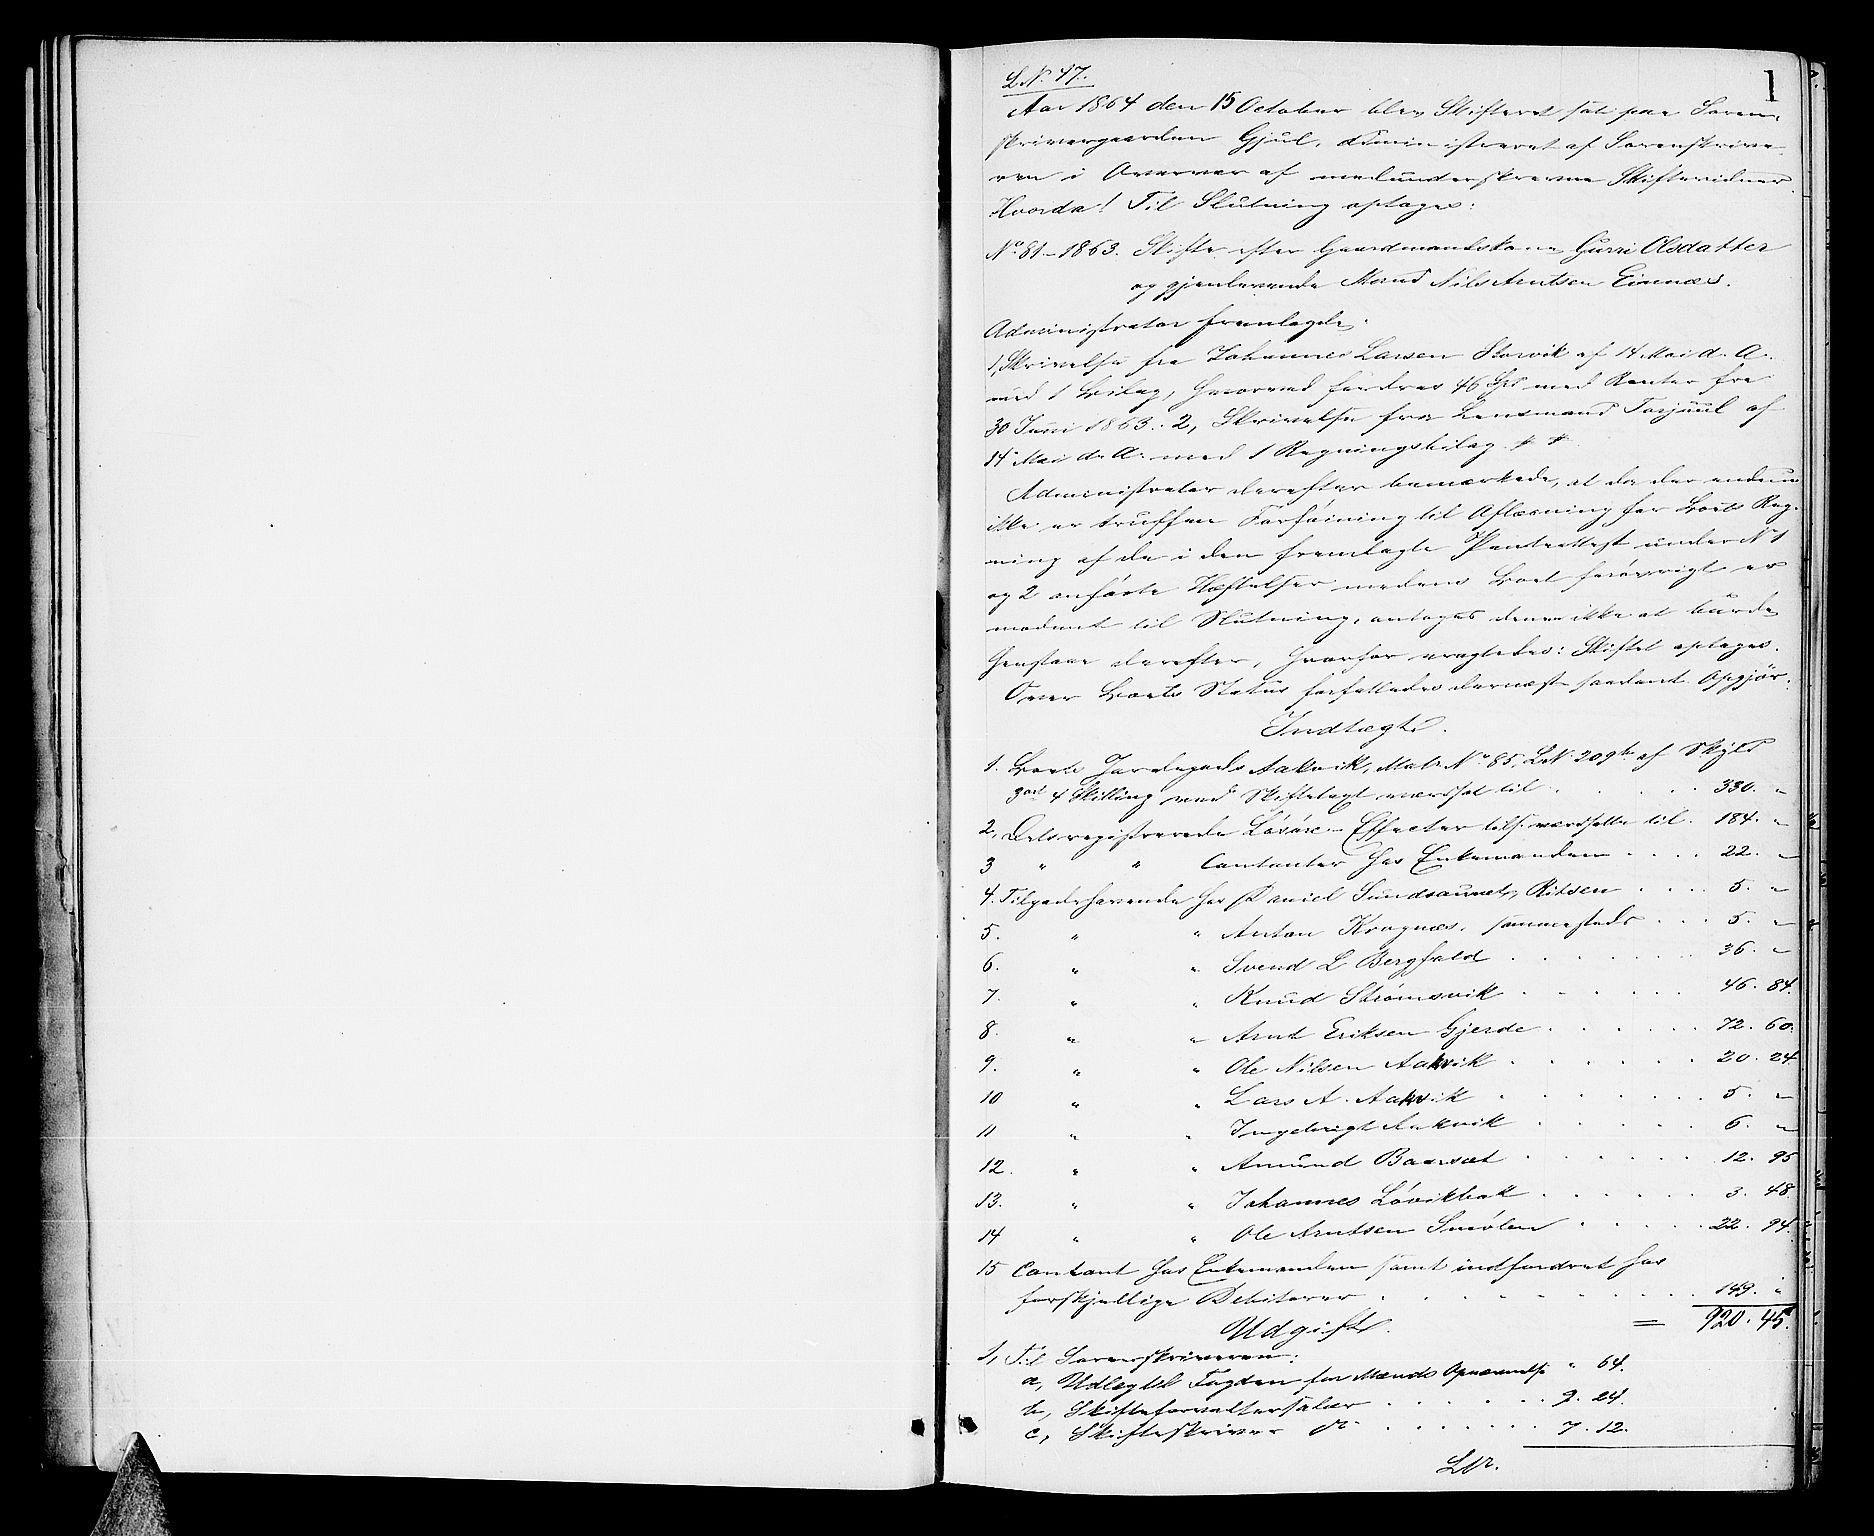 1
L.No. 47.
Aar 1864 den 15 October blev Skifteret sat paa Soren-
skrivergaarden Gjul, administreret af Sorenskrive-
ren i Overvær af medunderskrevne Skiftevidner.
Hvorda! Til Slutning optages:
No. 81-1863. Skifte efter Gaardmandskone Gurri Olsdatter
og gjenlevende Mand Nils Arntsen Einnæs.
Administrator fremlagde:
1, Skrivelse fra Johannes Larsen Storvik af 14 Mai d. A.
med 1 Bilag, hvorved fordres 46 Spd med Renter fra
30 Juni 1863. 2, Skrivelse fra Lensmand Torjuul af
14 Mai d. A. med 1 Regningsbilag
Administrator derefter bemærkede, at da der endnu
ikke er truffen Forføining til Aflæsning for Boets Reg-
ning af de i den fremlagte Panteattest under No 1
og 2 anførte Hæftelser medens Boet forøvrigt er
modent til Slutning, antages denne ikke at burde
henstaae derefter, hvorfor eragtedes: Skiftet optages.
Over Boets Status forfattedes dernæst saadant Opgjør:
Indtægt.
1. Boets Jordegods Aakvik, Matr. No. 85, L.N. 209 af Skyld
3 ort 4 Skilling ved Skiftetaxt værdsat til . . . 330. "
2, Dets registrerede Løsøre-Effecter tils. værdsatte til. 184. "
3 " " Contanter hos Enkemanden . . . . 22. "
4. Tilgodehavende hos Daniel Sundsaunet, Ritsen . . . . 5. "
5. " " Anton Krognæs, sammesteds . . . 5. "
6. " " Svend L Bergfald . . . . . . 36. "
7. " " Knud Strømsvik . . . . . . 46. 84.
8. " " Arnt Eriksen Gjerde . . . . . 72. 60.
9. " " Ole Nilsen Aakvik . . . . . 20. 24
10 " " Lars A. Aakvik . . . . . . 5. "
11 " " Ingebrigt Aakvik . . . . . . 6. "
12. " " Amund Baarset . . . . . . 12. 95
13. " " Johannes Løvikbak . . . . . 3. 48
14 " " Ole Arntsen Smølen . . . . . 22. 94.
15 Contant hos Enkemanden samt indfordret hos
forskjellige Debitorer . . . . . . . . 149. "
= 920. 45.
Udgift.
1, Til Sorenskriveren:
a, Udlæg til Fogden for Mænds Opnævnelse " 64.
b, Skifteforvaltersalær . . . . . . 9. 24.
c, Skifteskriver do . . . . . . 7. 12.
Ltr.